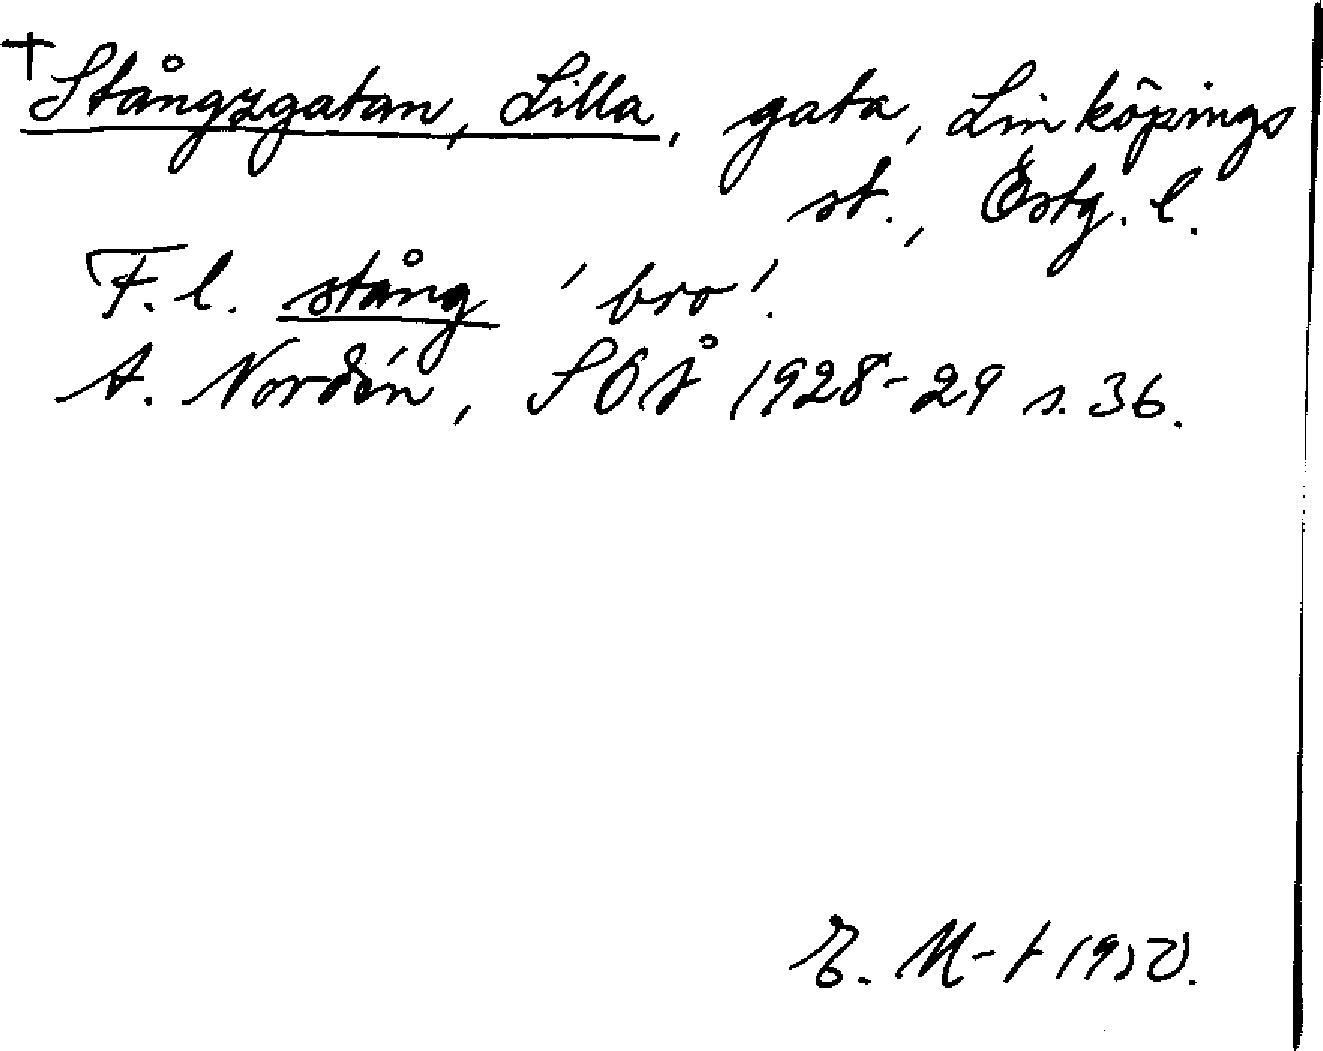 † Stångzgatan, Lilla, gata, Linköpings
st., Östg. l.
F. l. stång 'bro'.
A. Nordén, SOÅ 1928-29 s. 36.
E. M-t 1950.